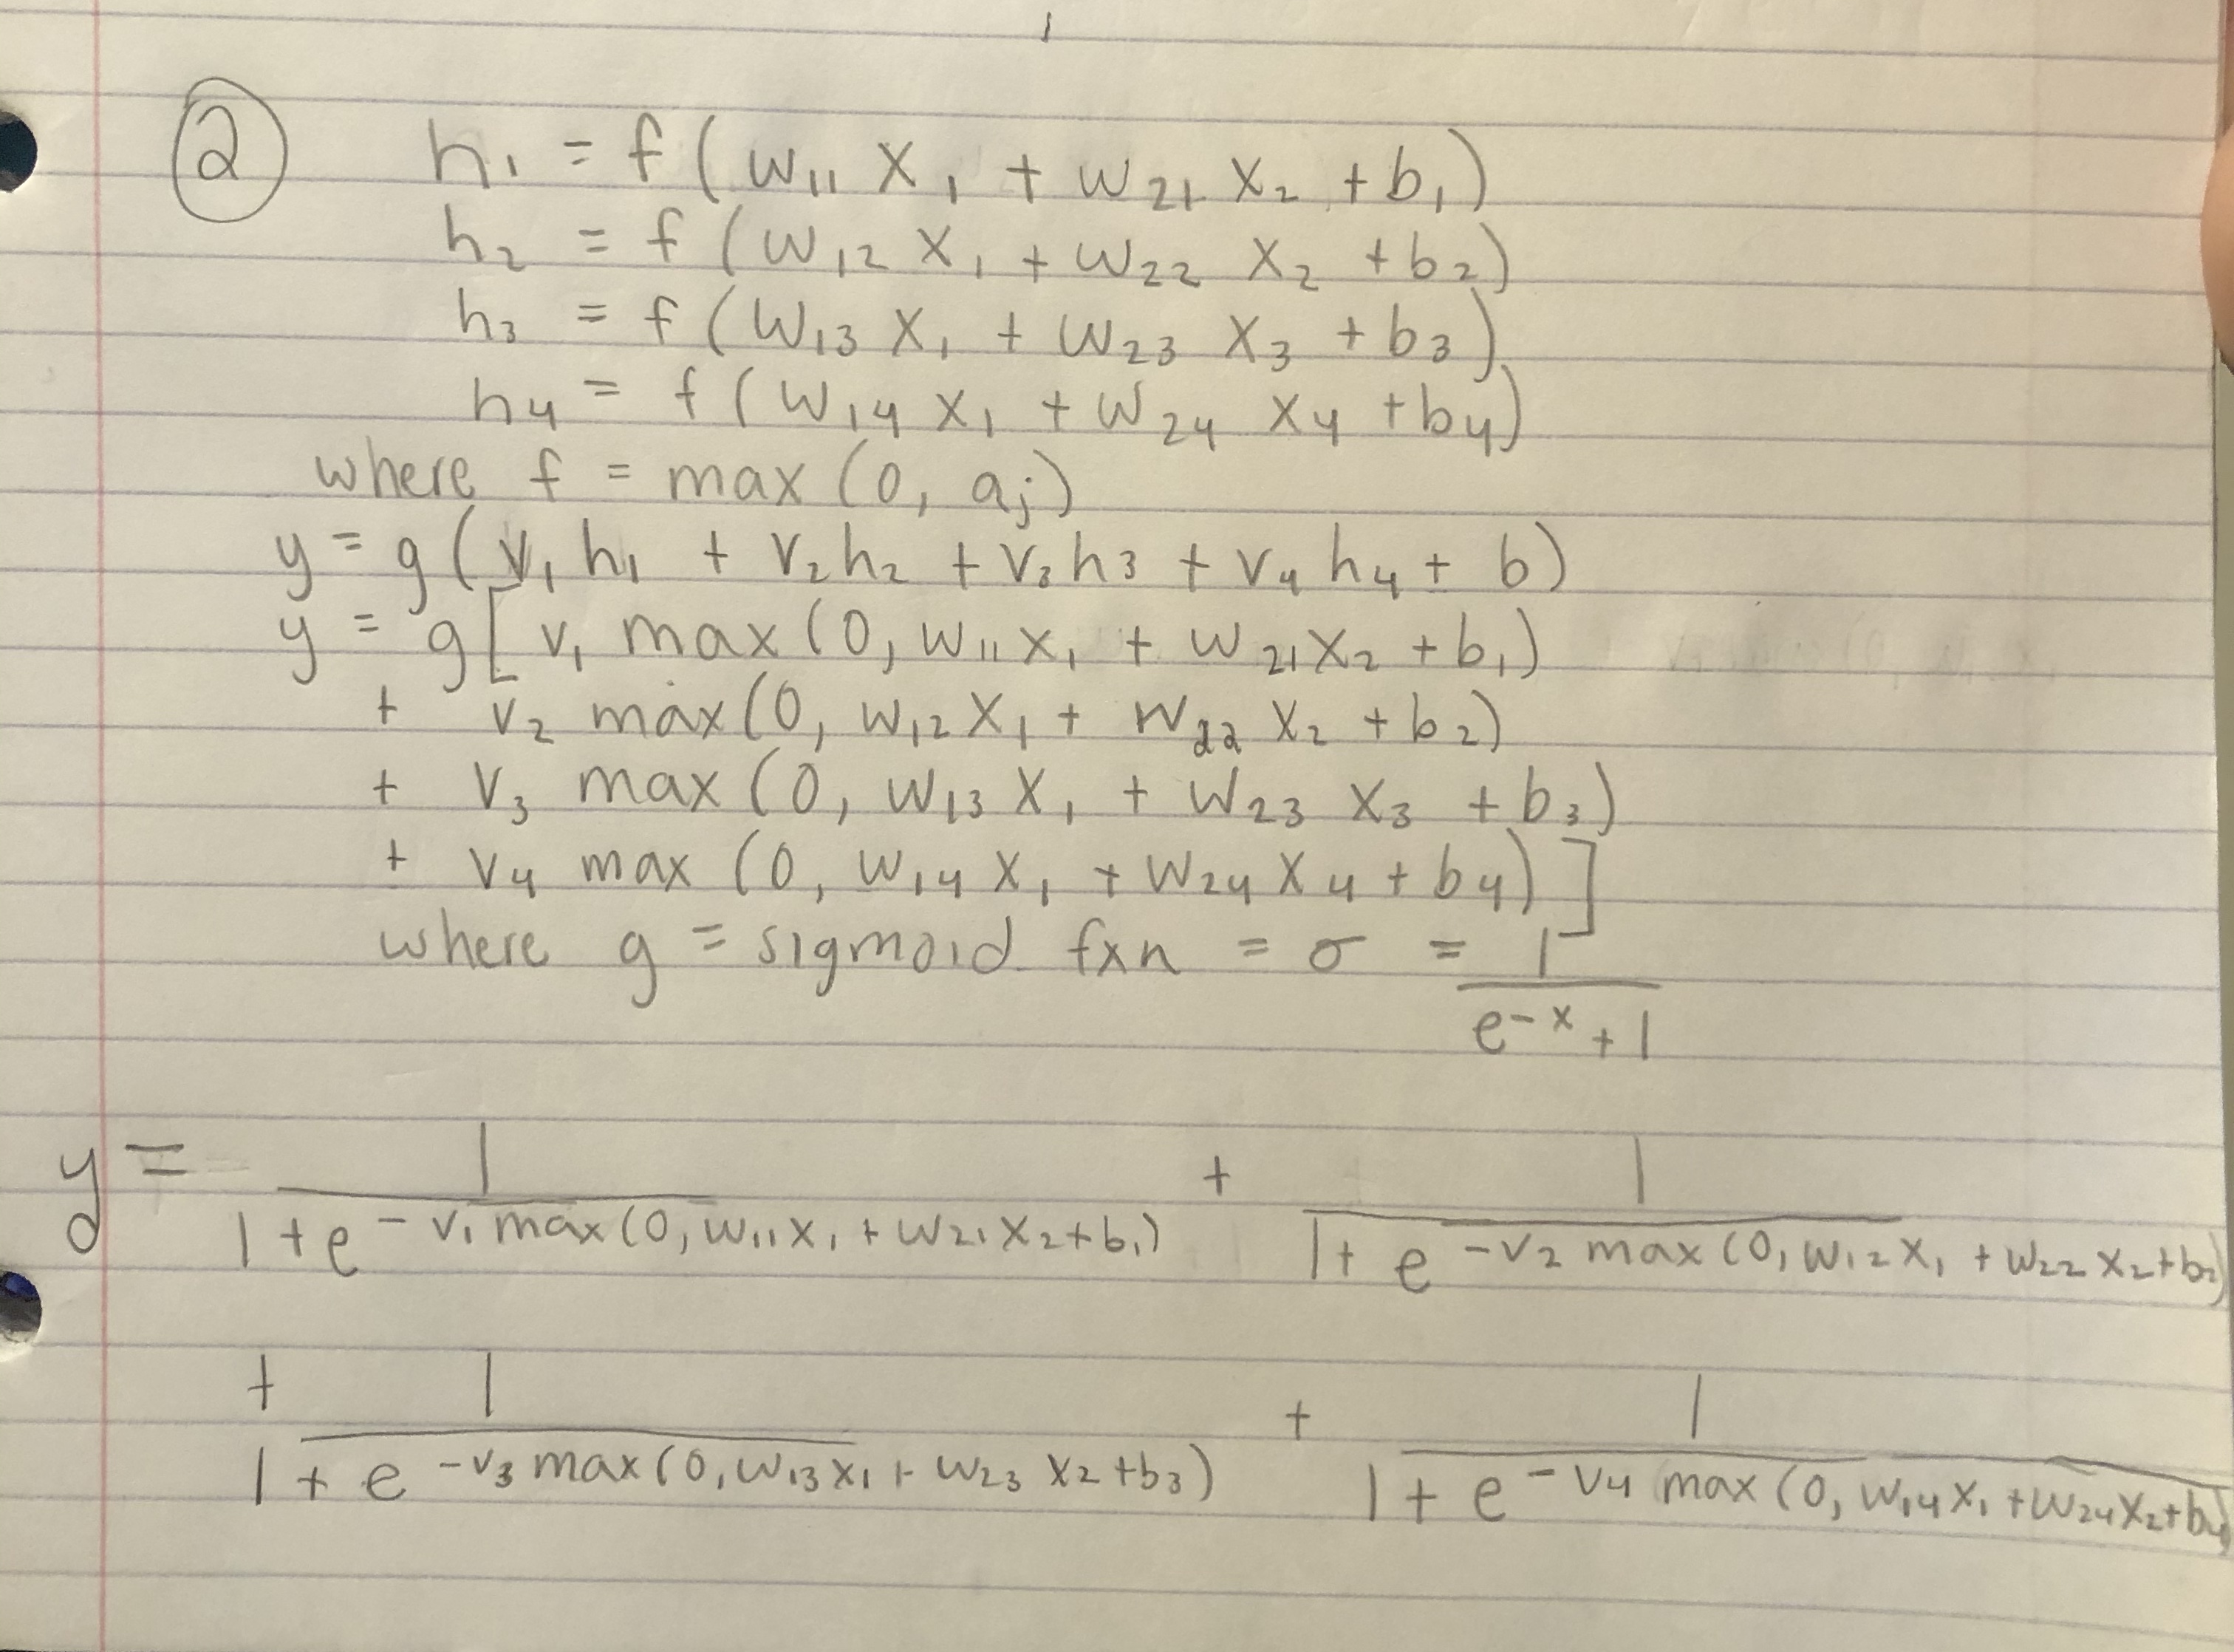 ② h₁ = f(w₁₁ x₁ + w₂₁ x₂ + b₁)
h₂ = f(w₁₂ x₁ + w₂₂ x₂ + b₂)
h₃ = f(w₁₃ x₁ + w₂₃ x₃ + b₃)
h₄ = f(w₁₄ x₁ + w₂₄ x₄ + b₄)
where f = max(0, aⱼ)
y = g(v₁h₁ + v₂h₂ + v₃h3 + v₄h₄ + b)
y = g[v₁ max(0, w₁₁x₁ + w₂₁x₂ + b₁)
+ v₂ max(0, w₁₂x₁ + w₂₂ x₂ + b₂)
+ v₃ max(0, w₁₃x₁ + w₂₃ x₃ + b₃)
+ v₄ max(0, w₁₄x₁ + w₂₄x₄ + b₄)]
where g = sigmoid fxn = σ = 1/(e^(-x) + 1)
y = 1/(1 + e^(-v₁max(0, w₁₁x₁ + w₂₁x₂ + b₁))) + 1/(1 + e^(-v₂max(0, w₁₂x₁ + w₂₂x₂ + b₂)))
+ 1/(1 + e^(-v₃max(0, w₁₃x₁ + w₂₃x₂ + b₃))) + 1/(1 + e^(-v₄max(0, w₁₄x₁ + w₂₄x₂ + b₄)))